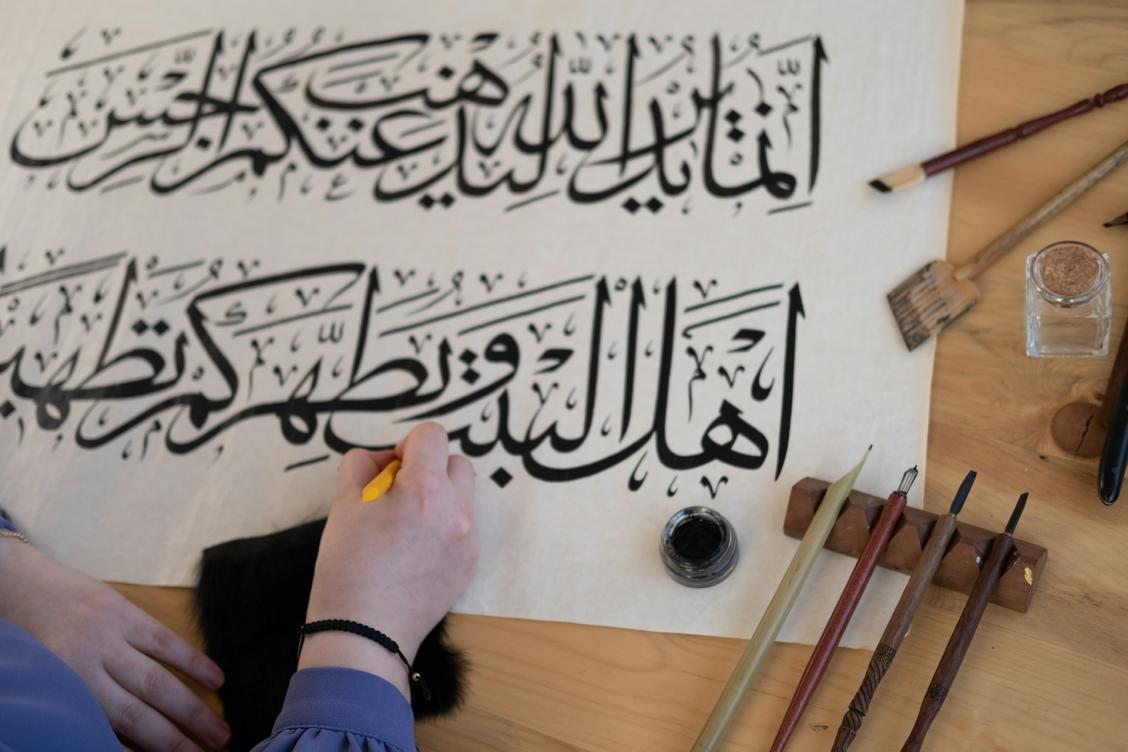 انما يريد الله ليذهب عنكم الرجس
اهل البيت ويطهركم تطهي